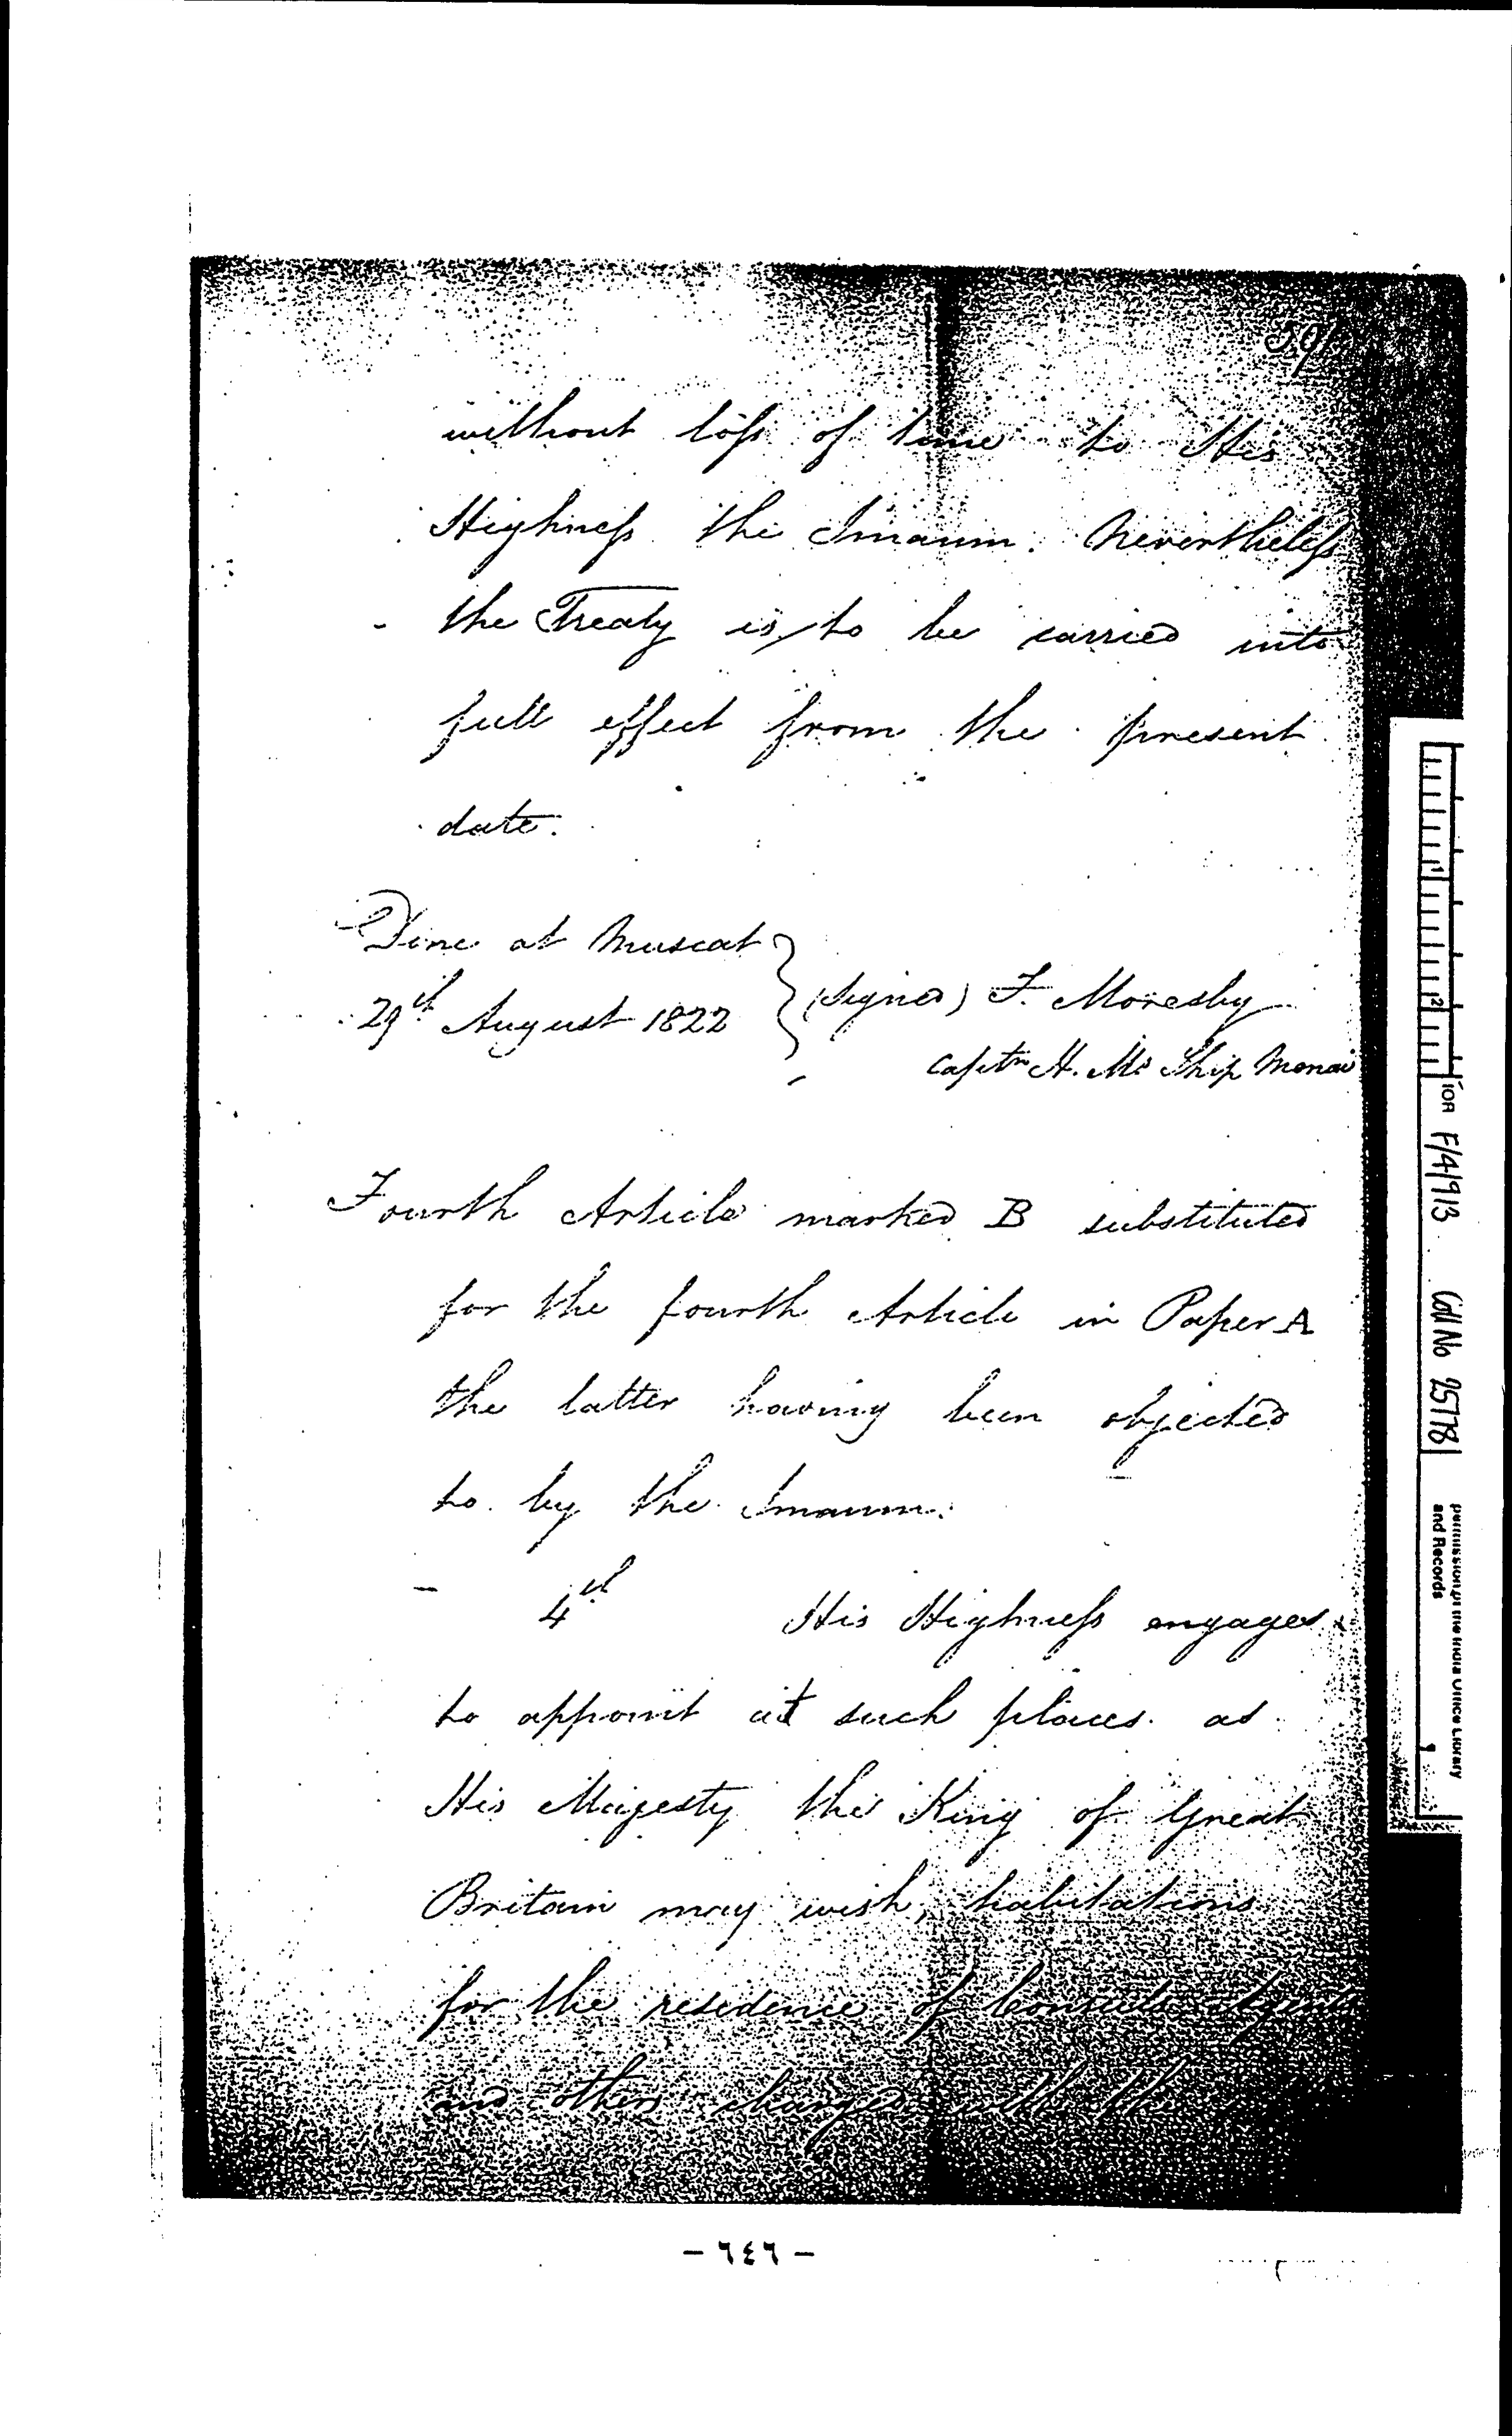 59
without loss of time to His
Highness the Imaum. Nevertheless
the Treaty is to be carried into
full effect from the present
date.
Done at Muscat
29th August 1822
(signed) F. Moresby
Captn H. Ms Ship Menai
Fourth Article marked B substituted
for the fourth Article in Paper A
the latter having been objected
to by the Imaum.
4th His Highness engages
to appoint at such places as
His Majesty the King of Great
Britain may wish, habitations
for the residence of Consuls Agents
and others charged with the
- ٦٤٦ -
IOR F/4/913 Coll No 25718
permission of the India Office Library
and Records